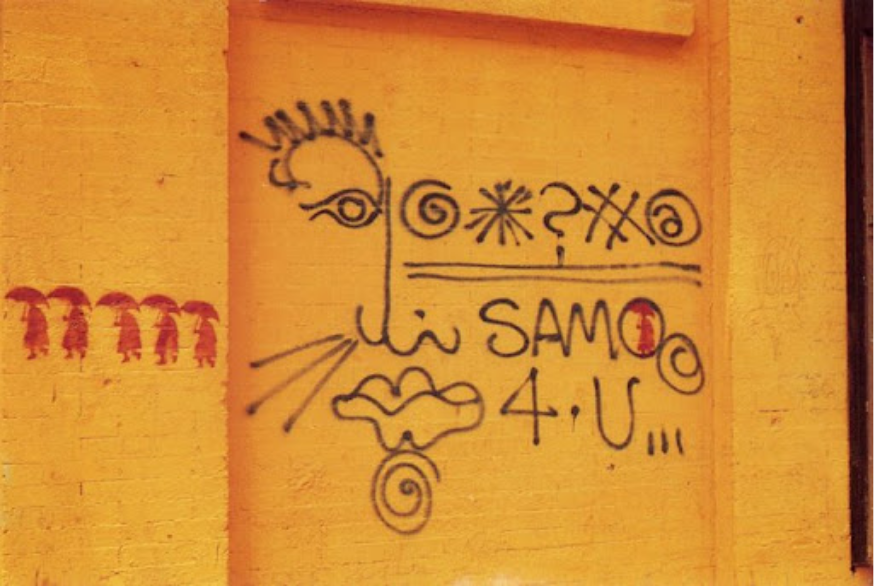 @*?#@
SAMO©
4·U...